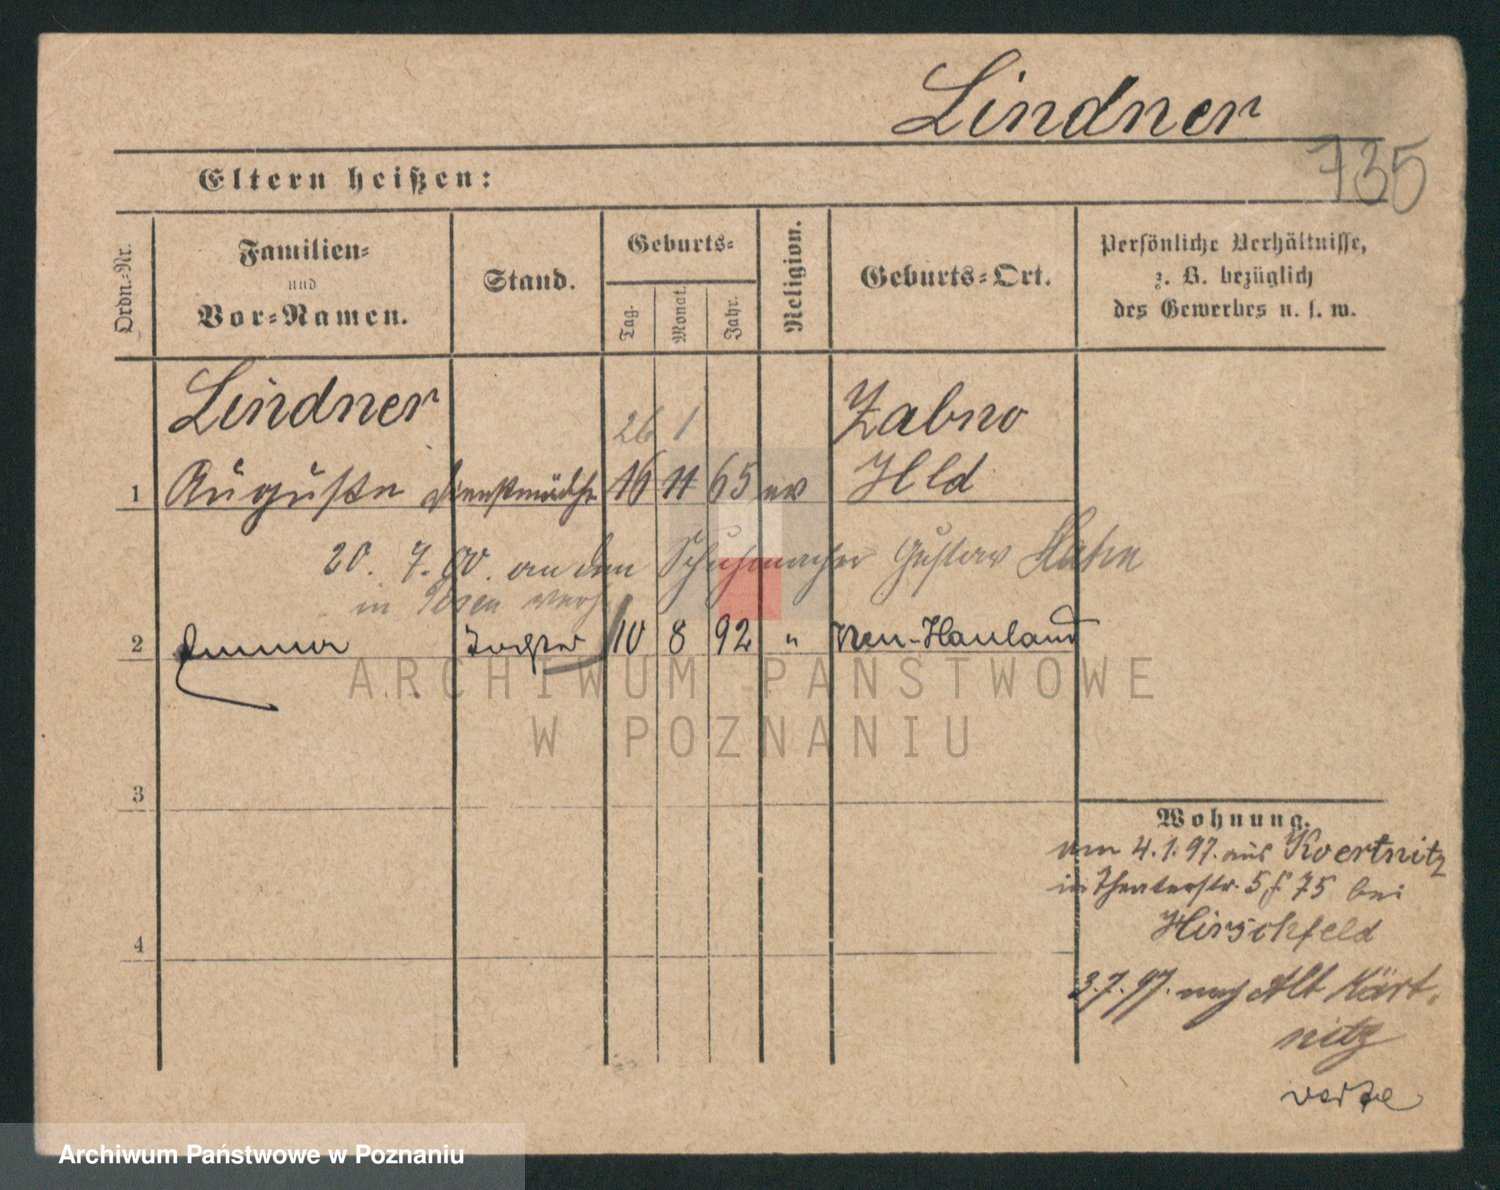 Lindner
735
Eltern heißen:
Ordn.-Nr.
Familien-
und
Vor-Namen.
Stand.
Geburts-
Tag.
Monat.
Jahr.
Religion.
Geburts-Ort.
Persönliche Verhältnisse,
z. B. bezüglich
des Gewerbes u. s. w.
Lindner
26 1
Zabno
1 Auguste Dienstmädch 16 11 65 ev Hld
20. 7. 00. an den Schuhmacher Gustav Hahn
in Posen verh.
2 Emma Tochter 10 8 92 " Neu-Hauland
ARCHIWUM PAŃSTWOWE
W POZNANIU
3
4
Wohnung.
am 4.1.97. aus Koertnitz
in Theaterstr. 5 75 bei
Hirschfeld
3.7.97. nach Alt Kärt-
nitz
Archiwum Państwowe w Poznaniu